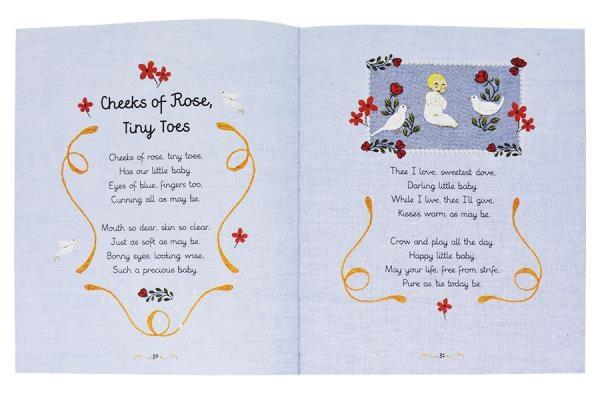 Cheeks of Rose,
Tiny Toes
Cheeks of rose, tiny toes,
Has our little baby.
Eyes of blue, fingers too,
Cunning all as may be.
Mouth so dear, skin so clear,
Just as soft as may be.
Bonny eyes, looking wise,
Such a precious baby.
30
Thee I love, sweetest dove,
Darling little baby.
While I live, thee I'll give,
Kisses warm as may be.
Crow and play all the day.
Happy little baby.
May your life, free from strife,
Pure as 'tis today be.
31